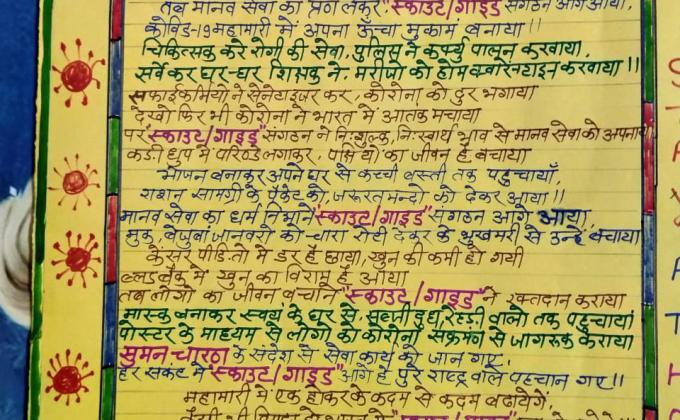 तब मानव सेवा का प्रण लेकर, "स्काउट/गाइड" संगठन आगे आया,
कोविड-19 महामारी में अपना ऊँचा मुकाम बनाया।।
चिकित्सक करे रोगी की सेवा, पुलिस ने कर्फ्यु पालन करवाया,
सर्वे कर घर-घर शिक्षक ने, मरीजो को होम क्वॉरनटाइन करवाया।।
सफाईकर्मियो ने सेनेटाइजर कर, कोरोना को दुर भगाया
देखो फिर भी कोरोना ने भारत में आतंक मचाया
पर "स्काउट/गाइड" संगठन ने नि:शुल्क, नि:स्वार्थ भाव से मानव सेवा को अपनाया
कडी धुप में परिण्डे लगाकर, पक्षियो का जीवन है बचाया
भोजन बनाकर अपने घर से कच्ची बस्ती तक पहुचायाँ,
राशन सामग्री के पैकेट को, जरूरतमन्दो को देकर आया।।
मानव सेवा का धर्म निभाने "स्काउट/गाइड" संगठन आगे आया,
मुक, बेजुबाँ जानवरो को चारा रोटी देकर के भुखमरी से उन्हे बचाया
कैंसर पीडितो मे डर है छाया, खुन की कमी हो गयी
ब्लड बैंक में खुन का विराम है आया
तब लोगो का जीवन बचाने "स्काउट/गाइड" ने रक्तदान कराया
मास्क बनाकर स्वयं के घर से, सब्जी दुध रेहड़ी वालो तक पहुचायां
पोस्टर के माध्यम से लोगो को कोरोना संक्रमण से जागरूक कराया
सुमन चारण के संदेश से सेवा कार्य को जान गए,
हर संकट में "स्काउट/गाइड" आगे है पुरे राष्ट्र वाले पहचान गए।।
महामारी में एक होकर के कदम से कदम बढायेगे,